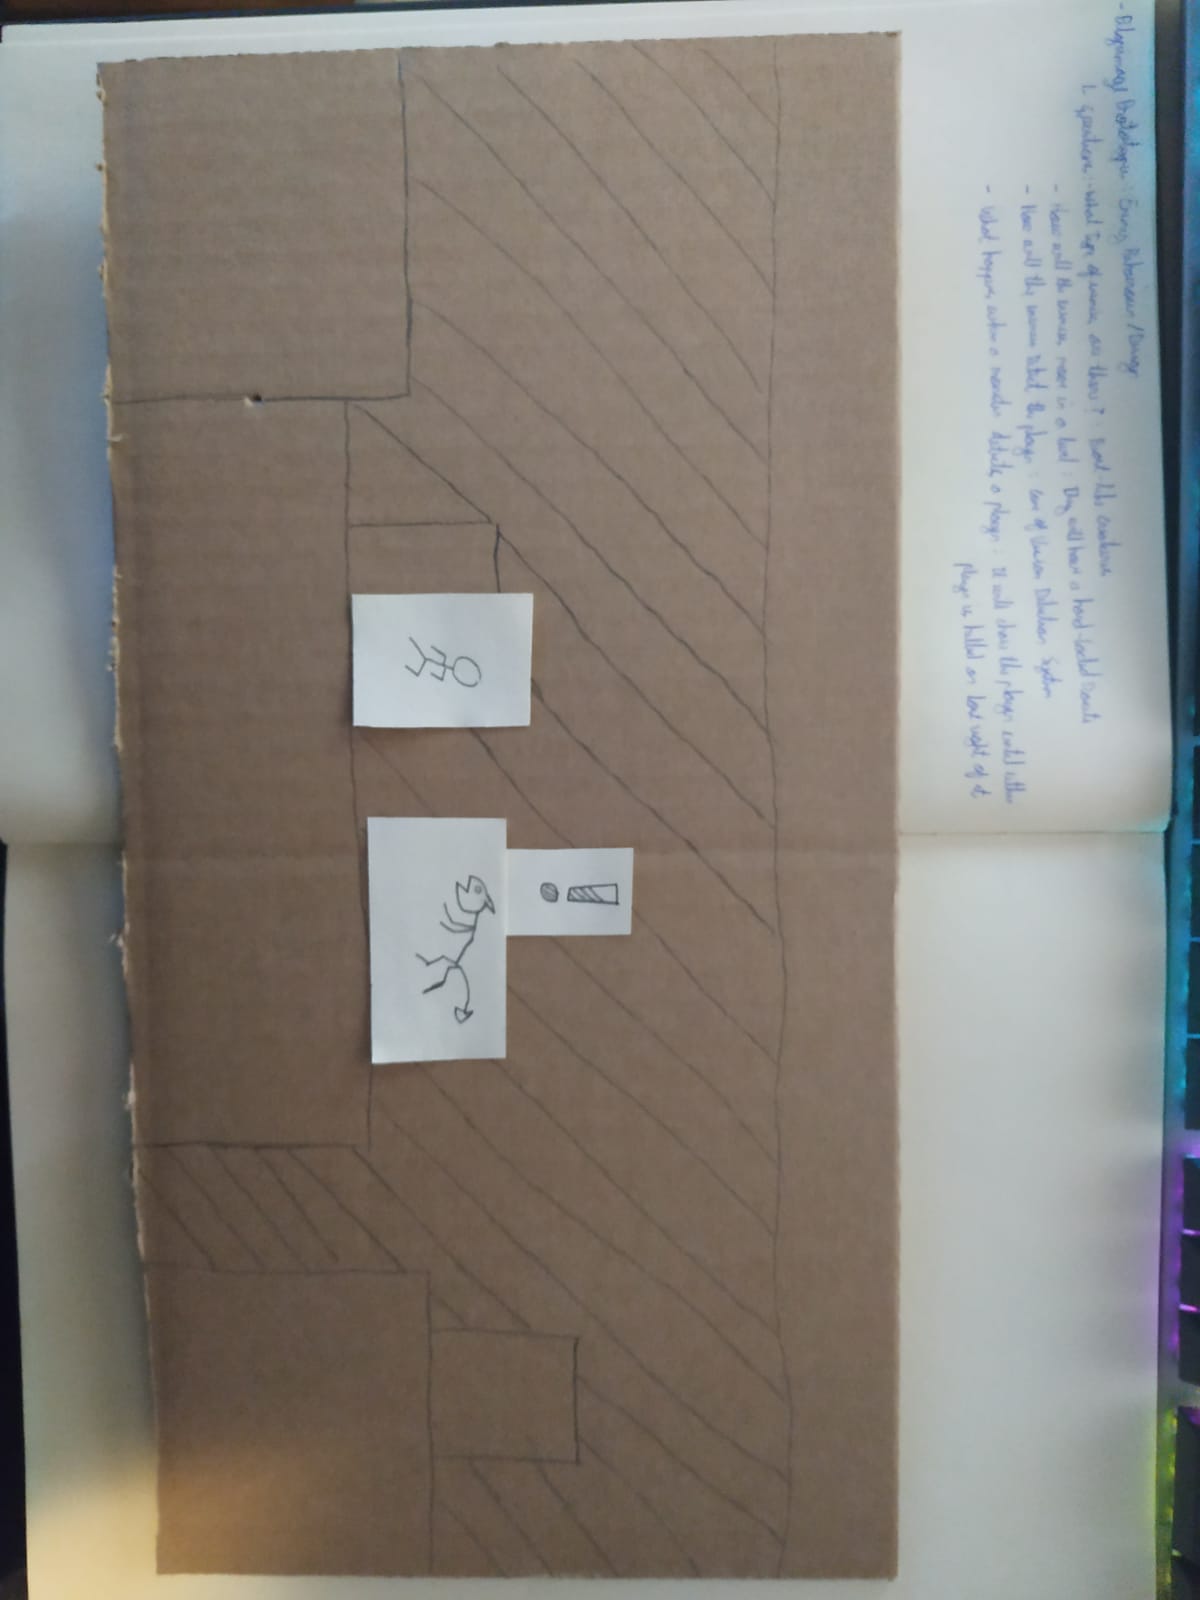 - Pilgrimage Prototype : Enemy Behaviour / Design
1. Questions : - What type of enemies are there? : Beast-like creatures
- How will the enemies move in a level : They will have a hard-coded Route
- How will the enemies detect the player : Cone of Vision Detection System
- What happens when a monster detects a player : It will chase the player until either
player is killed or lost sight of it
!